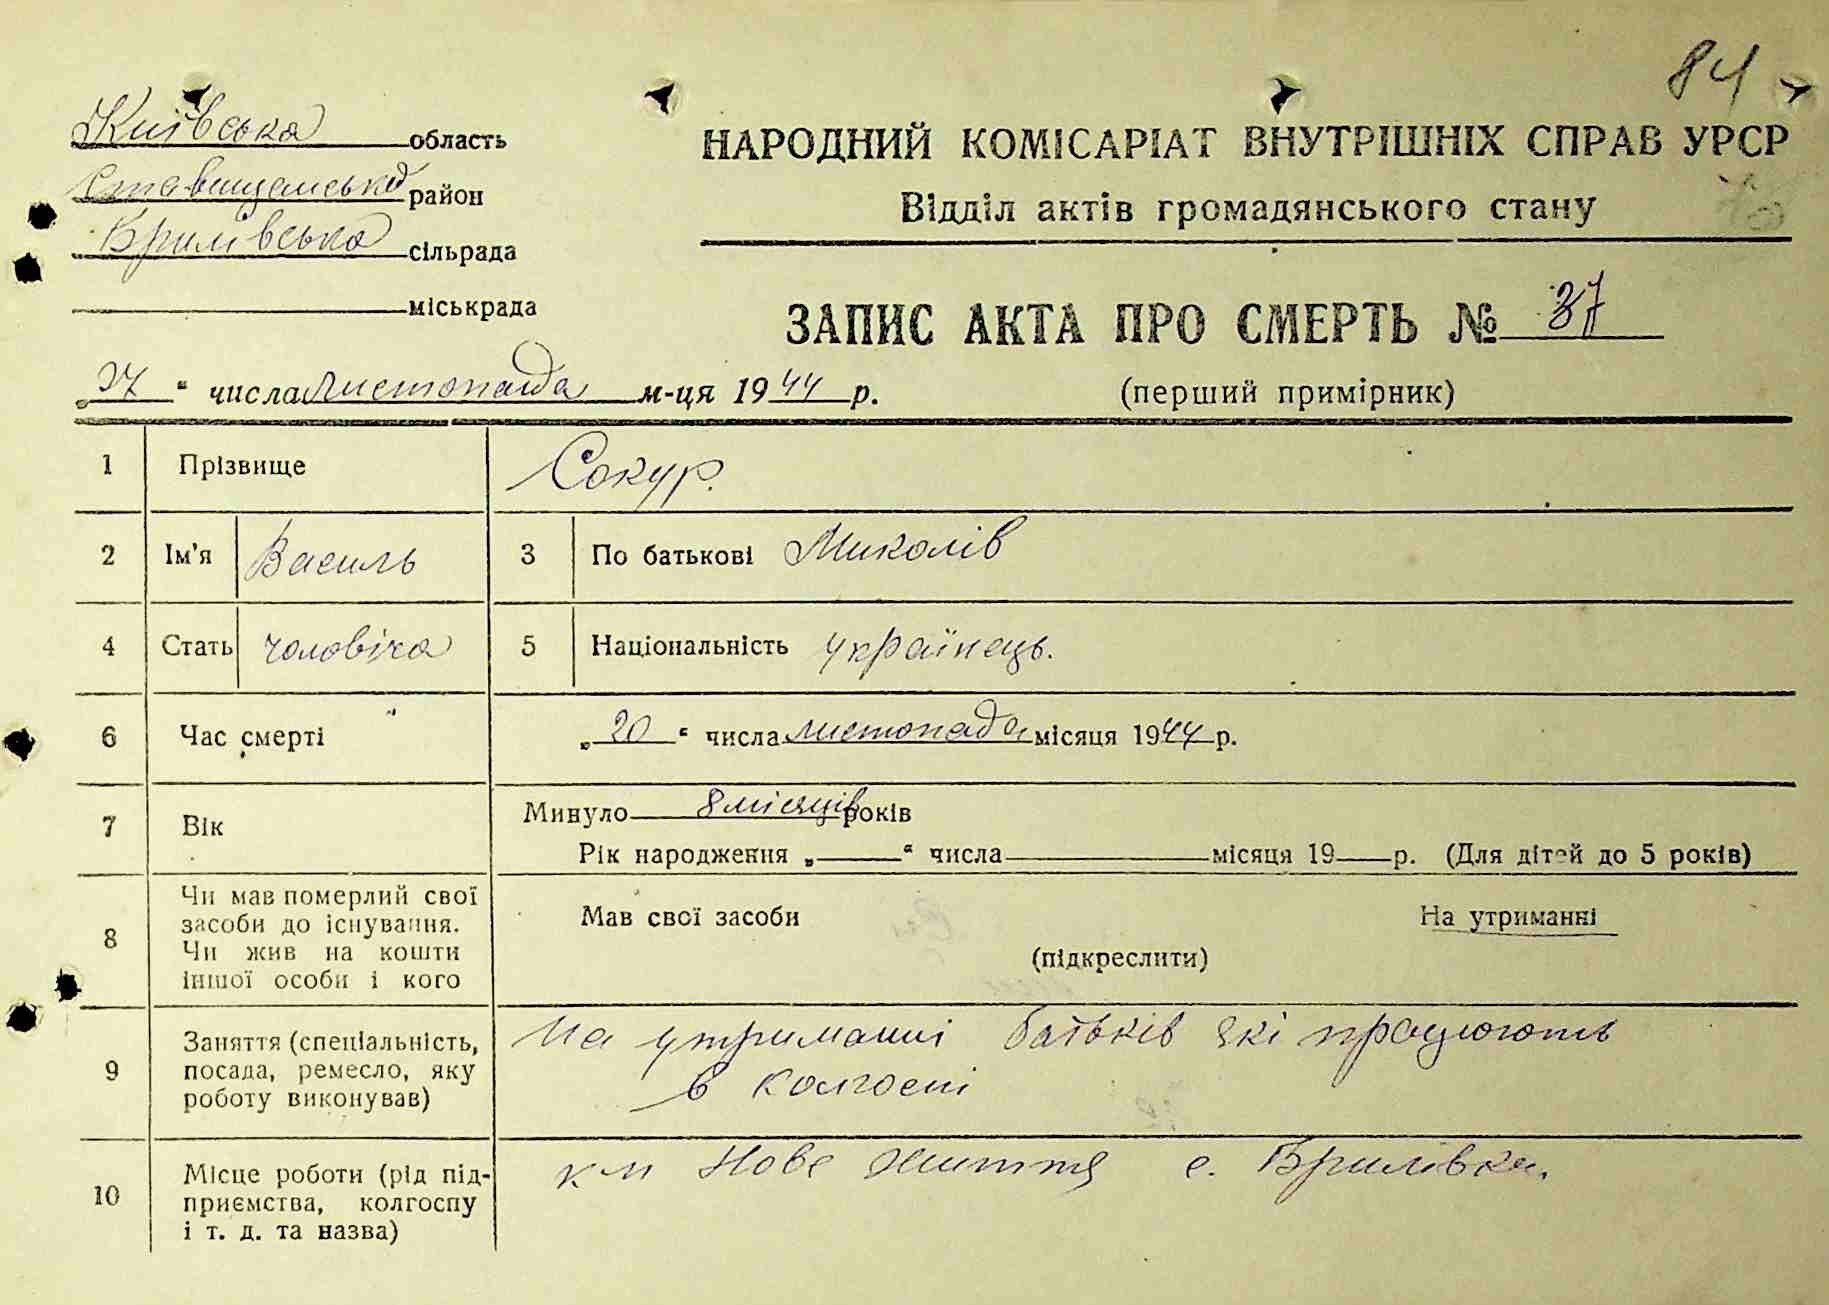 84
Київська область
НАРОДНИЙ КОМІСАРІАТ ВНУТРІШНІХ СПРАВ УРСР
Ставищанський район
Відділ актів громадянського стану
Брилівська сільрада
міськрада
ЗАПИС АКТА ПРО СМЕРТЬ № 37
„27“ числа листопада м-ця 1944 р.
(перший примірник)
1 Прізвище Сокур.
2 Ім'я Василь 3 По батькові Миколів
4 Стать чоловіча 5 Національність українець.
6 Час смерті „20“ числа листопада місяця 1944 р.
7 Вік Минуло 8 місяців років
Рік народження „ “ числа місяця 19 р. (Для дітей до 5 років)
8 Чи мав померлий свої
засоби до існування.
Чи жив на кошти
іншої особи і кого
Мав свої засоби На утриманні
(підкреслити)
9 Заняття (спеціальність,
посада, ремесло, яку
роботу виконував)
На утриманні батьків які працюють
в колгоспі
10 Місце роботи (рід під-
приємства, колгоспу
і т. д. та назва)
к-п Нове життя с. Брилівка.